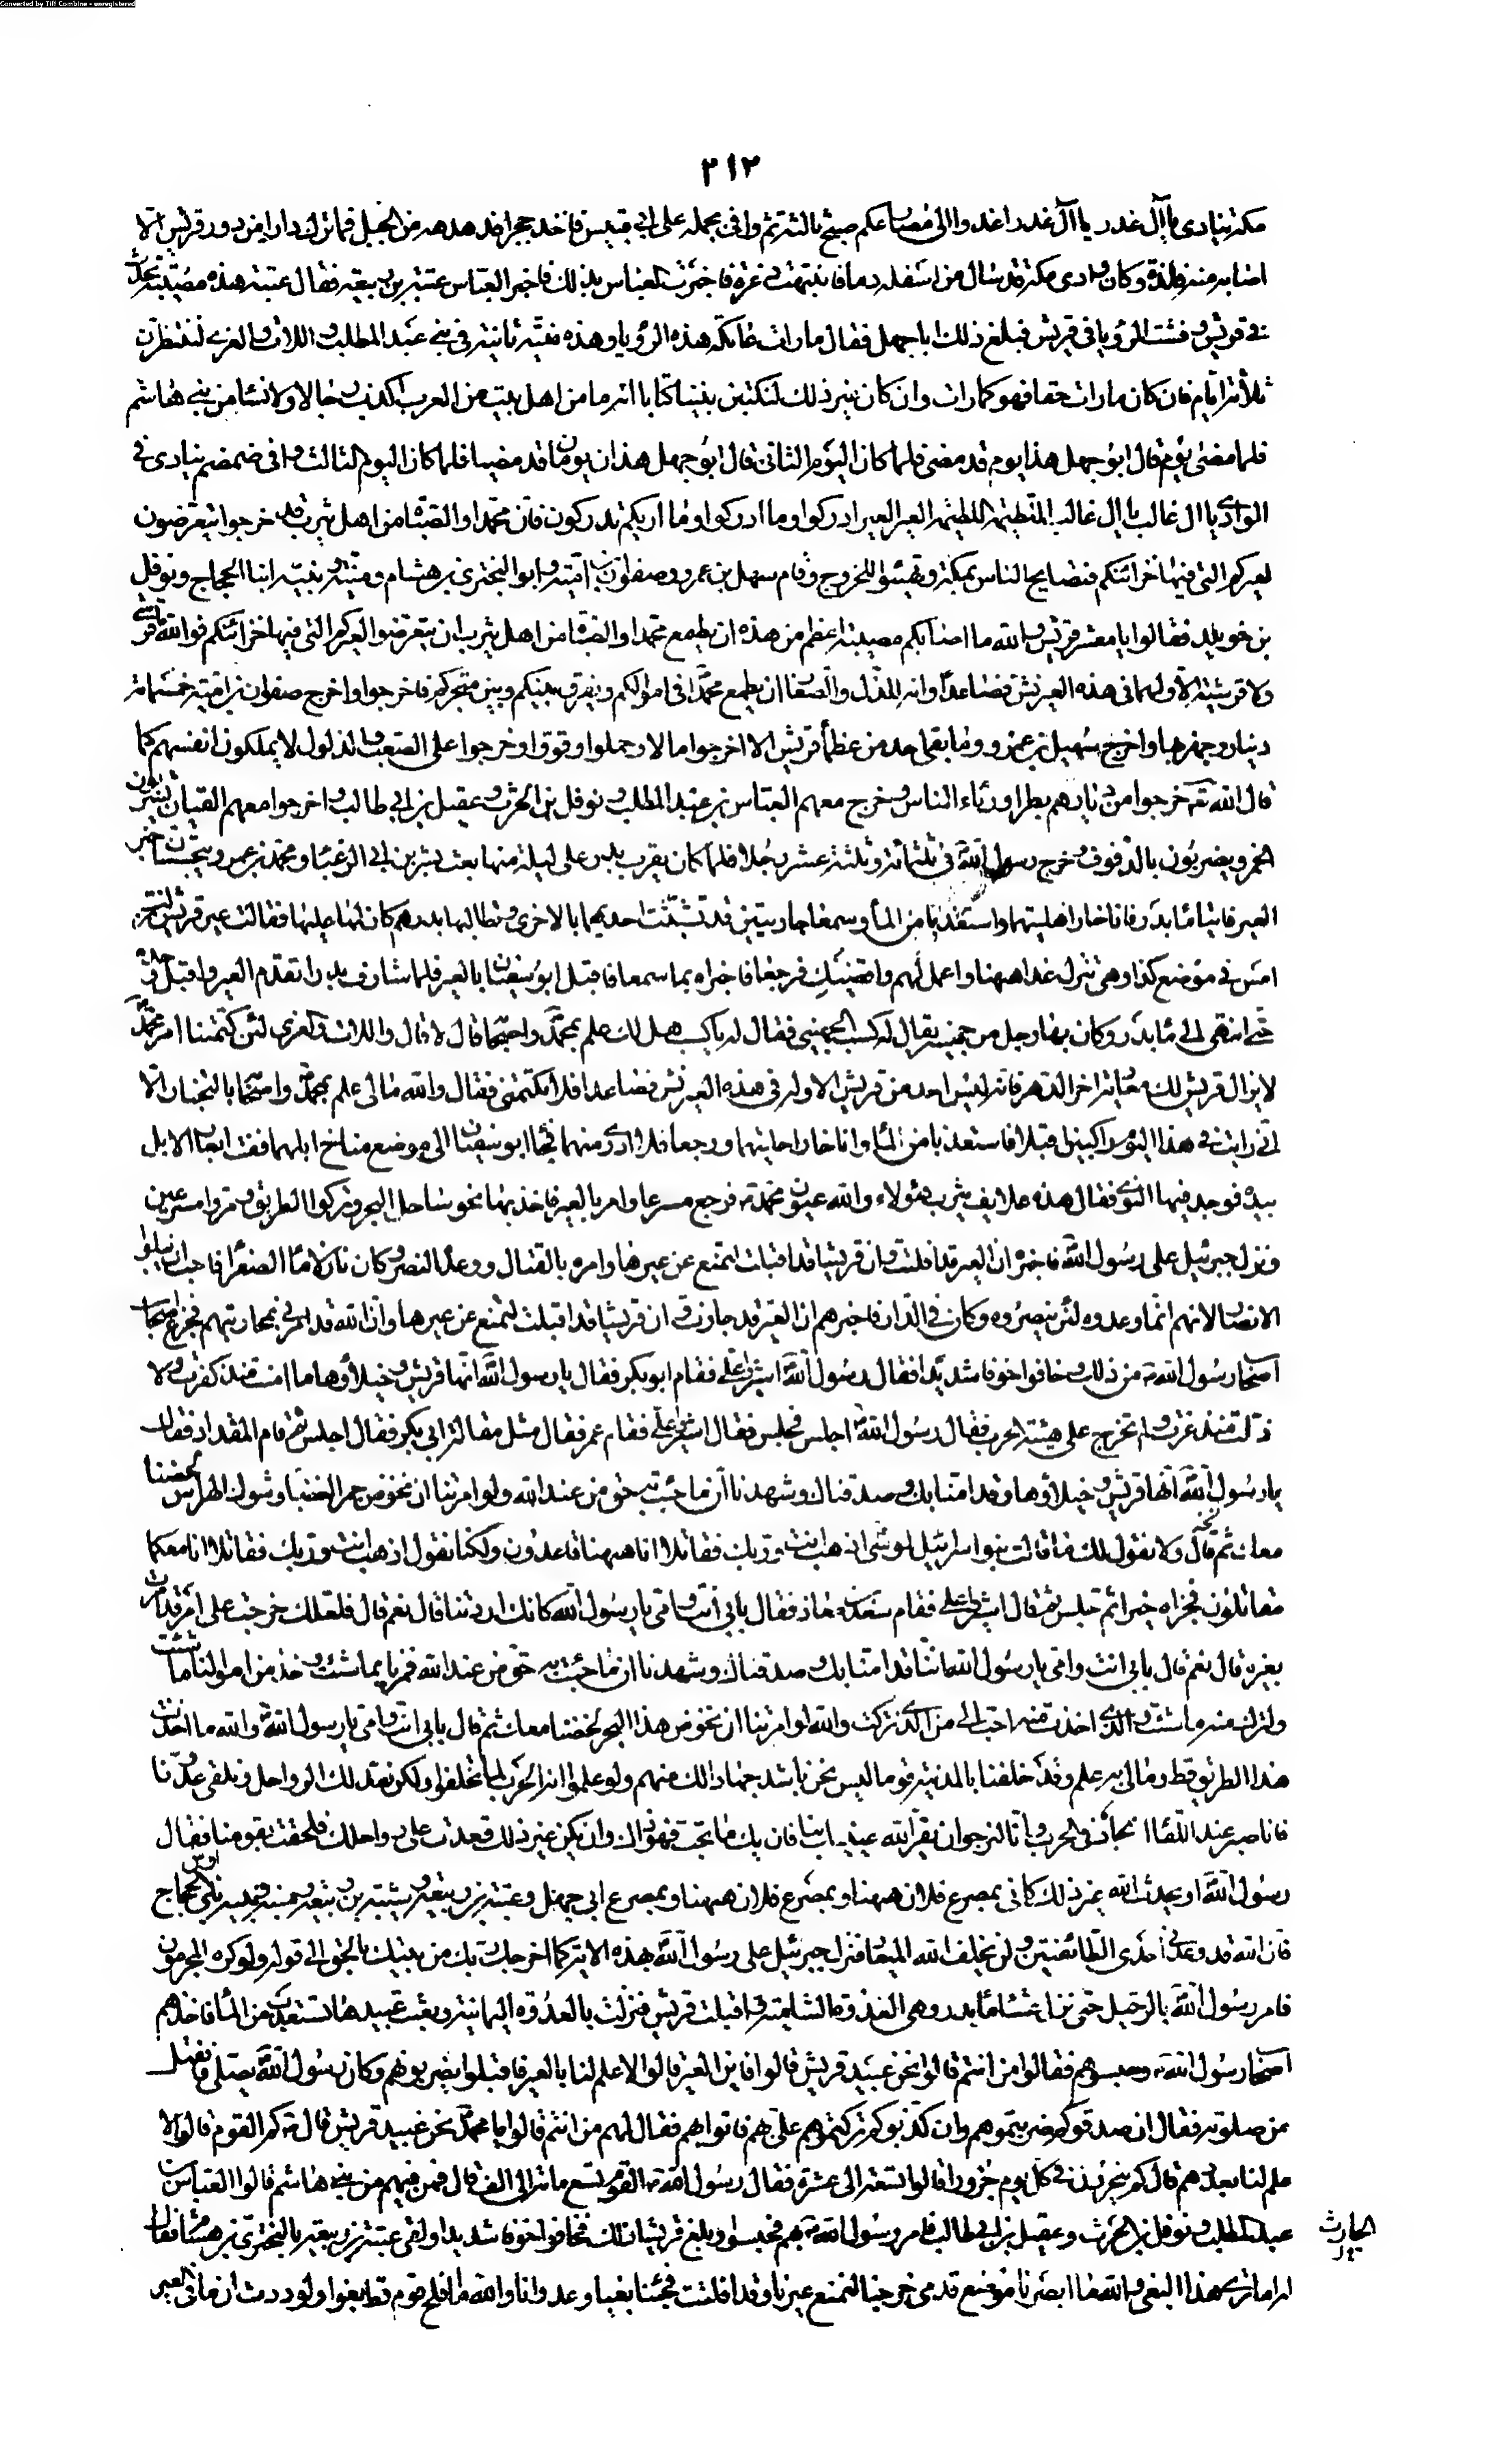 Converted by Tiff Combine - unregistered
٢١٢
مكة ينادى يا آل غدر يا آل غدر اغدوا الى مصارعكم صبح ثالثة ثم وافى بجمله على ابى قبيس فاخذ حجرا فدهدهه من الجبل فما ترك دارا من دور قريش الا
اصابه منه فلذة وكان وادى مكة قد سال من اسفله دما فانتبهت ذعرة فاخبرت العباس بذلك فاخبر العباس عتبة بن ربيعة فقال عتبة هذه مصيبة تحدث
فى قريش وفشت الرؤيا فى قريش فبلغ ذلك ابا جهل فقال ما رات عاتكة هذه الرؤيا وهذه نبية ثانية فى بنى عبد المطلب واللات والعزى لننتظرن
ثلاثة ايام فان كان ما رات حقا فهو كما رات وان كان غير ذلك لنكتبن بيننا كتابا انه ما من اهل بيت من العرب اكذب رجالا ولا نساء من بنى هاشم
فلما مضى يوم قال ابو جهل هذا يوم قد مضى فلما كان اليوم الثانى قال ابو جهل هذان يومان قد مضيا فلما كان اليوم الثالث وافى ضمضم ينادى فى
الوادى يا ال غالب يا ال غالب اللطيمة اللطيمة العير العير ادركوا وما اريكم تدركون فان محمدا والصباة من اهل يثرب قد خرجوا يتعرضون
لعيركم التى فيها خزائنكم فتصايح الناس بمكة وتهيئوا للخروج وقام سهل بن عمرو وصفوان بن امية وابو البخترى بن هشام ومنبه ونبيه ابنا الحجاج ونوفل
بن خويلد فقالوا يا معشر قريش والله ما اصابكم مصيبة اعظم من هذه ان يطمع محمد والصباة من اهل يثرب ان يتعرضوا لعيركم التى فيها خزائنكم فوالله ما قرشى
ولا قرشية الا ولهما فى هذه العير نش فصاعدا وانه للذل والصغار ان يطمع محمد فى اموالكم ويفرق بينكم وبين متجركم فاخرجوا واخرج صفوان بن امية خمسمائة
دينار وجهز بها واخرج سهيل بن عمرو وما بقى احد من عظماء قريش الا اخرجوا مالا وحملوا وقووا وخرجوا على الصعب والذلول لا يملكون انفسهم كما
قال الله تع خرجوا من ديارهم بطرا ورئاء الناس وخرج معهم العباس بن عبد المطلب ونوفل بن الحرث وعقيل بن ابى طالب واخرجوا معهم القيان يشربون
الخمر ويضربون بالدفوف وخرج رسول الله فى ثلثمائة وثلثة عشر رجلا فلما كان بقرب بدر على ليلة منها بعث بشر بن ابى الزغباء ومحمد بن عمرو يتجسسان خبر
العير فاتيا ماء بدر فاناخا راحلتيهما واستعذبا من الماء وسمعا جاريتين قد تشبثت احديهما بالاخرى وتطالبها بدرهم كان لها عليها فقالت عير قريش نزلت
امس فى موضع كذا وهى تنزل غدا ههنا واعمل لهم واقضيك فرجعا فاخبراه بما سمعا فاقبل ابو سفيان بالعير فلما شارف بدرا تقدم العير واقبل وحده
حتى انتهى الى ماء بدر وكان بها رجل من جهينة يقال له كسب الجهينى فقال له يا كسب هل لك علم بمحمد واصحابه قال لا قال واللات والعزى لئن كتمتنا امر محمد
لا يزال قريش لك معادية اخر الدهر فانه ليس احد من قريش الا وله فى هذه العير نش فصاعدا فلا تكتمنى فقال والله مالى علم بمحمد واصحابه بالتجبار الا
انى رايت فى هذا اليوم راكبين اقبلا فاستعذبا من الماء واناخا راحلتيهما ورجعا فلا ادرى من هما فجاء ابو سفيان الى موضع مناخ ابلهما ففت ابعار الابل
بيده فوجد فيها النوى فقال هذه علايف يثرب هؤلاء والله عيون محمد فرجع مسرعا وامر بالعير فاخذ بها نحو ساحل البحر وتركوا الطريق ومروا مسرعين
ونزل جبرئيل على رسول الله فاخبره ان العير قد افلتت وان قريشا قد اقبلت لتمنع عن عيرها وامره بالقتال ووعده النصر وكان نازلا ماء الصفراء فاحب ان يبلوا
الانصار لانهم انما وعدوه ان ينصروه وكان فى الدار فاخبرهم ان العير قد جازت وان قريشا قد اقبلت لتمنع عن عيرها وان الله قد امرنى بمحاربتهم فجزع
اصحاب رسول الله من ذلك وخافوا خوفا شديدا فقال رسول الله اشيروا على فقام ابو بكر فقال يا رسول الله انها قريش وخيلاؤها ما امنت منذ كفرت ولا
ذلت منذ عزت ولم تخرج على هيئة الحرب فقال رسول الله اجلس فجلس فقال اشيروا على فقام عمر فقال مثل مقالة ابى بكر فقال اجلس ثم قام المقداد فقال
يا رسول الله انها قريش وخيلاؤها وقد امنا بك وصدقناك وشهدنا ان ما جئت به حق من عند الله ولو امرتنا ان نخوض جمر الغضا وشوك الهراس لخضنا
معك ثم قال ولا نقول لك ما قالت بنو اسرائيل لموسى اذهب انت وربك فقاتلا انا ههنا قاعدون ولكنا نقول اذهب انت وربك فقاتلا انا معكما
مقاتلون فجزاه خيرا ثم جلس ثم قال اشيروا على فقام سعد بن معاذ فقال بابى انت وامى يا رسول الله كانك اردتنا قال نعم قال فلعلك خرجت على امر قد امرت
بغيره قال نعم قال بابى انت وامى يا رسول الله انا قد امنا بك وصدقناك وشهدنا ان ما جئت به حق من عند الله فمرنا بما شئت وخذ من اموالنا ما شئت
واترك منه ما شئت والذى اخذت منه احب الى من الذى تركت والله لو امرتنا ان نخوض هذا البحر لخضنا معك ثم قال بابى انت وامى يا رسول الله والله ما اخذت
هذا الطريق قط ومالى به علم وقد خلفنا بالمدينة قوما ليس نحن باشد جهادا لك منهم ولو علموا انه الحرب لما تخلفوا ولكن نعد لك الرواحل ونلقى عدونا
فانا صبر عند اللقاء انجاد فى الحرب وانا لنرجو ان يقر الله عينيك بنا فان يك ما تحب فهو ذاك وان يكن غير ذلك قعدت على رواحلك فلحقت بقومنا فقال
رسول الله او يحدث الله غير ذلك كانى بمصرع فلان ههنا وبمصرع فلان ههنا وبمصرع ابى جهل وعتبة بن ربيعة وشيبة بن ربيعة ومنبه ونبيه ابنى الحجاج
فان الله قد وعدنى احدى الطائفتين ولن يخلف الله الميعاد فنزل جبرئيل على رسول الله بهذه الاية كما اخرجك ربك من بيتك بالحق الى قوله ولو كره المجرمون
فامر رسول الله بالرحيل حتى نزل عشاء ماء بدر وهى العدوة الشامية واقبلت قريش فنزلت بالعدوة اليمانية وبعثت عبيدها تستعذب من الماء فاخذهم
اصحاب رسول الله وحبسوهم فقالوا من انتم قالوا نحن عبيد قريش قالوا فاين العير قالوا لا علم لنا بالعير فاقبلوا يضربونهم وكان رسول الله يصلى فانفتل
من صلوته فقال ان صدقوكم ضربتموهم وان كذبوكم تركتموهم على بهم فاتوا بهم فقال لهم من انتم قالوا يا محمد نحن عبيد قريش قال كم القوم قالوا لا
علم لنا بعددهم قال كم ينحرون فى كل يوم جزورا قالوا تسعة الى عشرة فقال رسول الله القوم تسعمائة الى الف قال فمن فيهم من بنى هاشم قالوا العباس بن
عبد المطلب ونوفل بن الحرث وعقيل بن ابى طالب فامر رسول الله بهم فحبسوا وبلغ قريشا ذلك فخافوا خوفا شديدا ولقى عتبة بن ربيعة ابا البخترى بن هشام فقال
الحارث
له اما ترى هذا البغى والله ما ابصر موضع قدمى خرجنا لنمنع عيرنا وقد افلتت فجئنا بغيا وعدوانا والله ما افلح قوم قط بغوا ولوددت ان ما فى العير